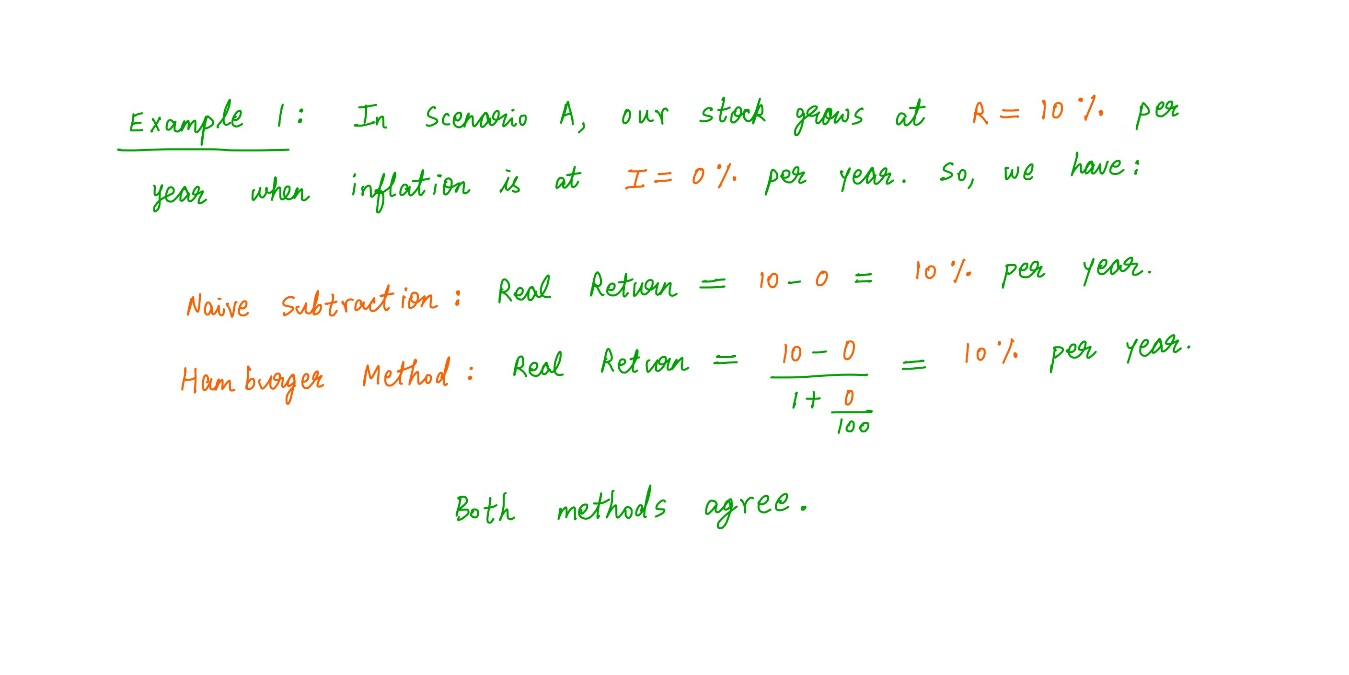 Example 1: In Scenario A, our stock grows at R = 10 % per
year when inflation is at I = 0 % per year. So, we have:
Naive Subtraction: Real Return = 10 - 0 = 10 % per year.
Hamburger Method: Real Return = (10 - 0) / (1 + 0/100) = 10 % per year.
Both methods agree.